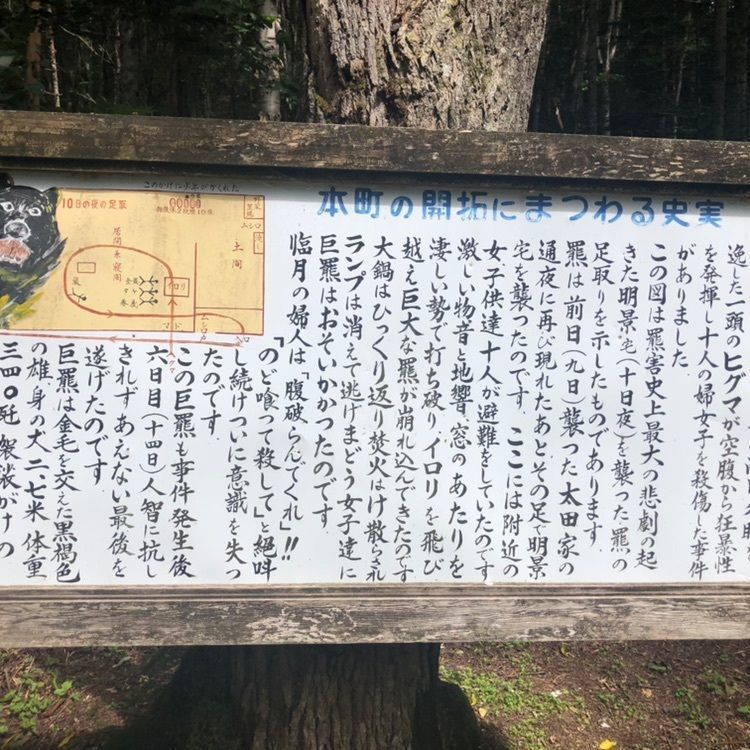 本町の開拓にまつわる史実
逸した一頭のヒグマが空腹から狂暴性
を発揮し十人の婦女子を殺傷した事件
がありました
この図は羆害史上最大の悲劇の起
きた明景宅(十日夜)を襲った羆の
足取りを示したものであります
羆は前日(九日)襲った太田家の
通夜に再び現れたあとその足で明景
宅を襲ったのです ここには附近の
女子供達十人が避難をしていたのです
激しい物音と地響、窓のあたりを
凄しい勢で打ち破りイロリを飛び
越え巨大な羆が崩れ込んできたのです
大鍋はひっくり返り焚火はけ散らされ
ランプは消えて逃げまどう女子達に
巨羆はおそいかかったのです
臨月の婦人は「腹破らんでくれ」!!
「のど喰って殺して」と絶叫
し続けついに意識を失っ
たのです
この巨羆も事件発生後
六日目(十四日)人智に抗し
きれず あえない最後を
遂げたのです
巨羆は金毛を交えた黒褐色
の雄、身の丈二、七米 体重
三四〇瓩 袈裟がけの
10日の夜の足取
土間
居間兼寝間
イロリ
マド
クマ
入口
ムシロ